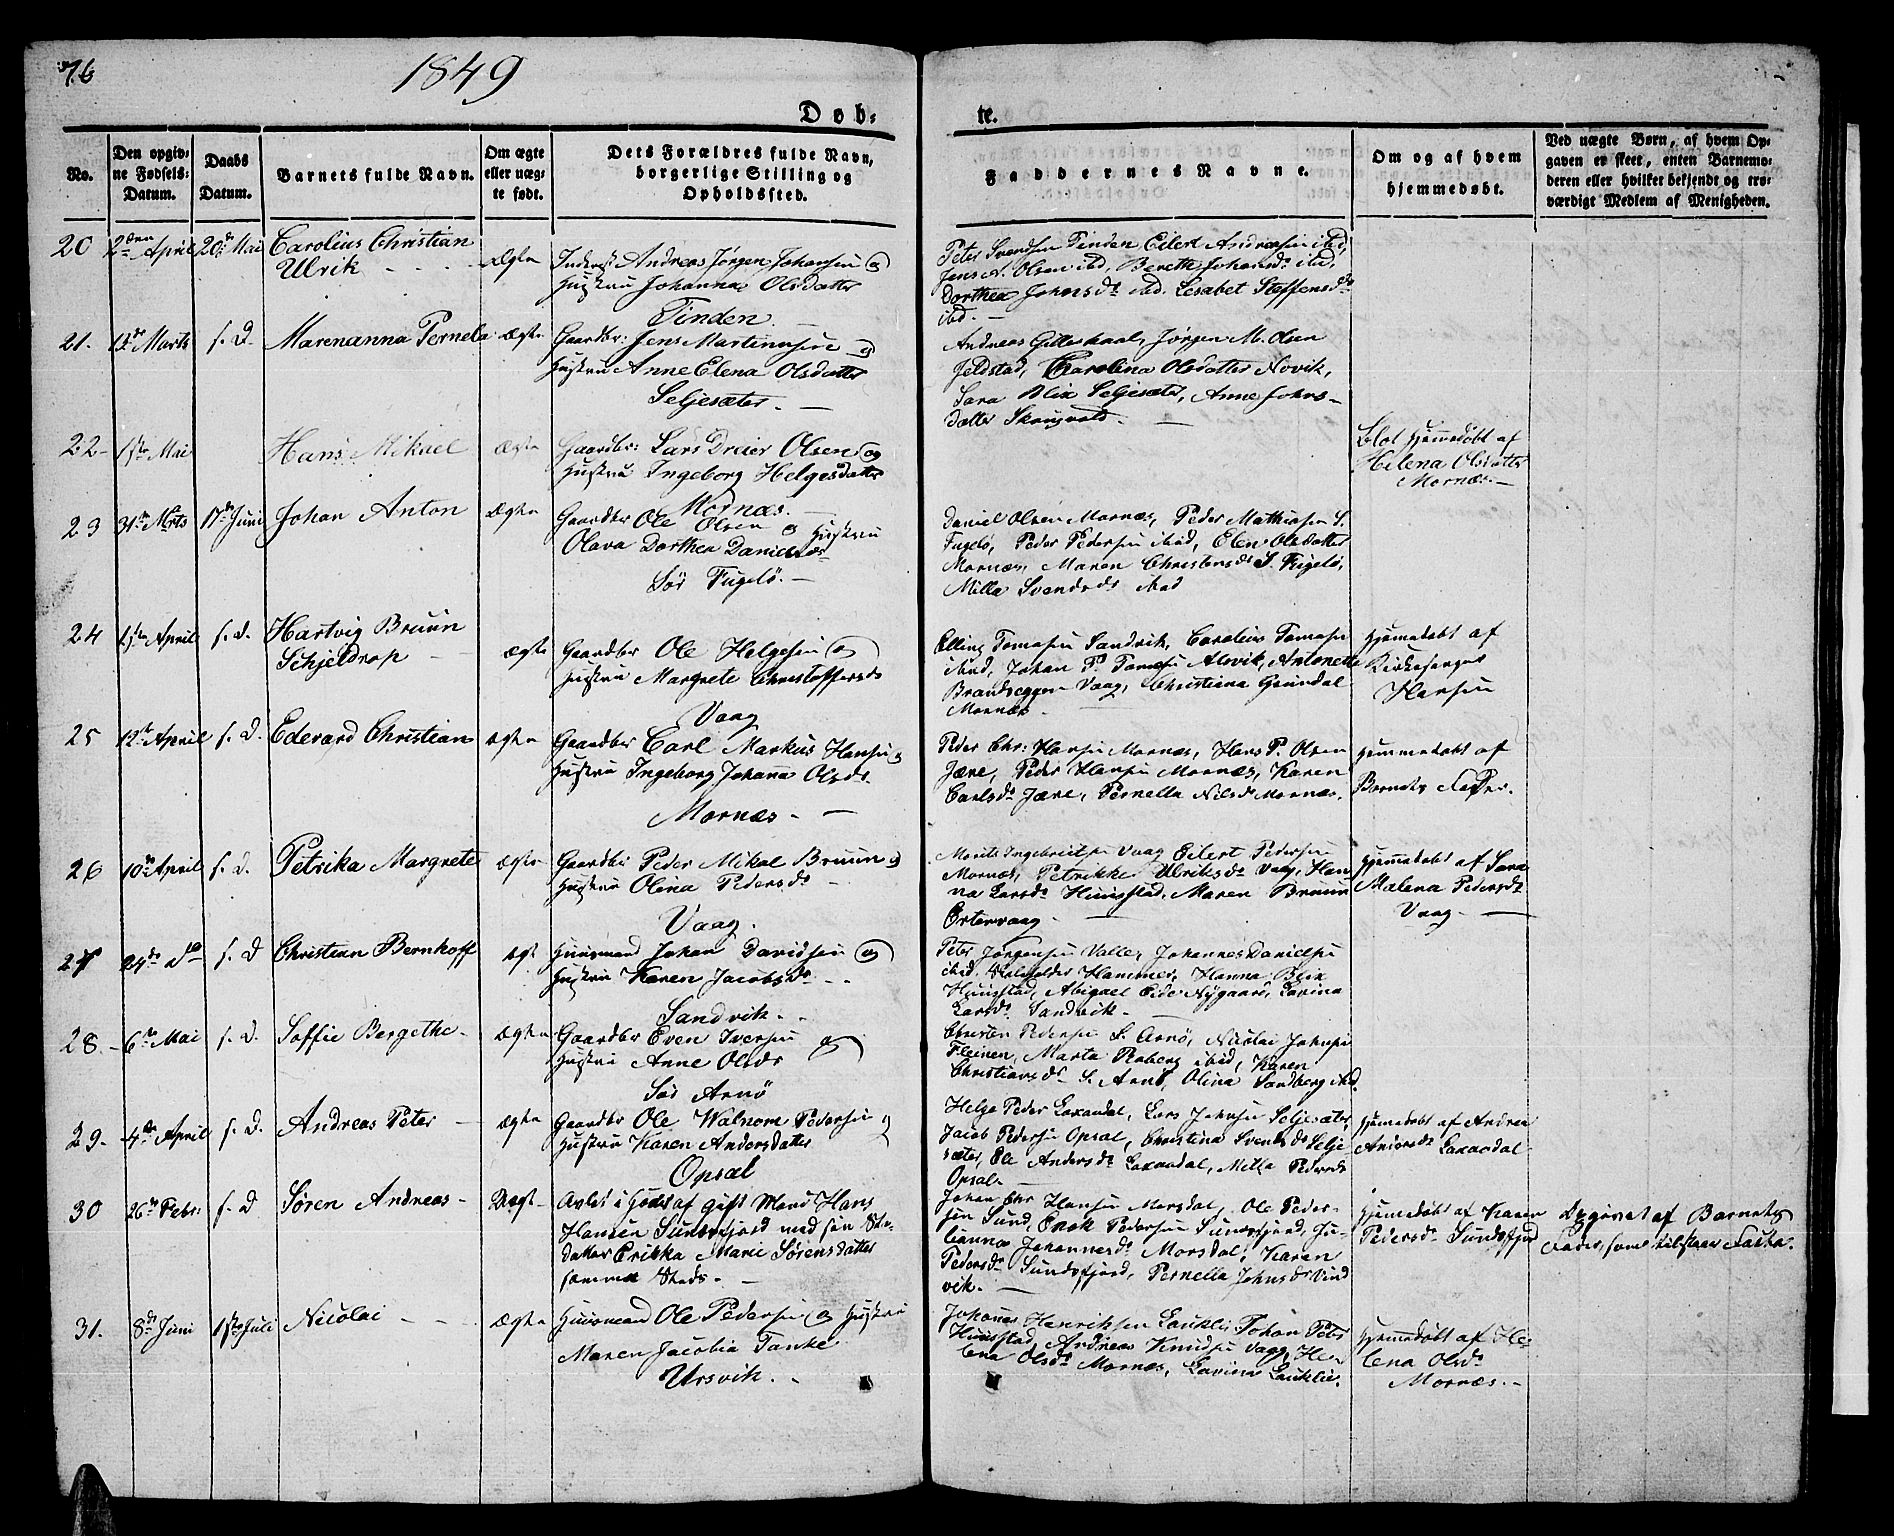 76
1849
Døb-
te.
No.
Den opgiv-
ne Fødsels-
Datum.
Daabs
Datum.
Barnets fulde Navn.
Om ægte
eller uæg-
te født.
Dets Forældres fulde Navn,
borgerlige Stilling og
Opholdssted.
Faddernes Navne.
Om og af hvem
hjemmedøbt.
Ved uægte Børn, af hvem Op-
gaven er skeet, enten Barnemo-
deren eller hvilket bekjendt og tro-
værdigt Medlem af Menigheden.
20 2den April 20de Mai Carolius Christian
Ulrik
Ægte
Inderst Andreas Jørgen Johansen og
Hustru Johanna Olsdatter
Tinden
Peter Svendsen Tinden Eilert Andreasen ibid,
Jens A. Olsen ibd, Bereth Johansdr ibd,
Dorthea Johnsdr ibd. Lesabet Steffensdr
ibd.
21. Marts s. D. Marenanna Pernela ægte
Gaardbr: Jens Martinusen og
Hustru Anne Elena Olsdatter
Seljesæter.
Andreas Gilleskaal, Jørgen M. Olsen
Feldstad, Karolina Olsdatter Novik,
Sara Blix Seljesæter, Anne Johns-
datter Skaugvold.
22 1ste Mai Hans Mikael ægte
Gaardbr: Lars Dreier Olsen og
Hustru Ingeborg Helgesdatter
Mornæs.
Blot hjemmedøbt af
Helena Olsdatter
Mornæs.
23 31te Mrts 17de Juni Johan Anton Ægte
Gaardbr Ole Olsen og Hustru
Olava Dorthea Danielsdr
Sør Fugelø.
Daniel Olsen Mornæs, Peder Mathiasen S.
Fugelø, Peder Pedersen ibid, Elen Olsdatter
Mornæs, Maren Christensdr S. Fugelø,
Milla Svendsdr ibid
24 1ste April s. d. Hartvig Bruun
Schjeldrop
ægte
Gaardbr Ole Helgesen og
Hustru Margrete Christoffersdr
Vaag
Elling Tomasen Sandvik, Carolius Tomasen
ibid, Johan P. Tomasen Alsvik, Antonette
Brandseggen Vaag, Christiana Grundal
Mornæs.
Hjemmedøbt af
Kirkesanger
Hansen
25 12te April s. D. Edevard Christian ægte
Gaardbr Carl Markus Hansen og
Hustru Ingeborg Johanna Olsdr.
Mornæs.
Peder Chr: Hansen Mornæs, Hans P. Olsen
Jære, Peder Hansen Mornæs, Karen
Carlsdr Jære, Pernella Nilsdr Mornæs.
Hjemmedøbt af
Barnets Fader.
26 10de April s. D. Petrika Margrete ægte
Gaardbr Peder Mikal Bruun og
Hustru Olina Pedersdr
Vaag.
Morits Ingebrictsen Vaag Eilert Pedersen
Mornæs, Petrikke Ulriksdr Vaag, Han-
na Larsdr Hunstad, Maren Bruun
Østervaag
Hjemmedøbt af Sara
Malena Pedersdr
Vaag.
27 24de do s. D Christian Bernhoff ægt
Huusmand Johan Davidsen og
Hustru Karen Jacobsdr
Sandvik.
Peter Jørgensen Valle, Johannes Danielsen
ibid. Hammer, Hanna Blix
Hunstad, Abigael Eide Nygaard, Lavina
Larsdr Sandvik.
28. 6te Mai s. D. Soffie Bergethe ægte
Gaardbr Even Iversen og
Hustru Anne Olsdr
Sør Arnø
Christen Pedersen S. Arnø, Nicolai Johnsen
Fleinen, Marta Roberg ibid, Karen
Christiansdr S. Arnø, Olina Sandberg ibd.
29. 4de April s. D. Andreas Peter ægte
Gaardbr Ole Walnom Pedersen og
Hustru Karen Andersdatter
Opsal
Helge Peder Laxaadal, Lars Johnsen Seljesæter,
Jacob Pedersen Opsal, Christina Svendsdr Selje-
sæter, Ele Andersdr Laxaadal, Milla Pedersdr
Opsal.
Hjemmedøbt af Andrea
Andersdr Laxaadal
30 26de Febr: s. D Søren Andreas Uægt
Avlet i Hoer af gift Mand Hans
Hansen Sundsfjord med sin Ste-
datter Erikka Marie Sørensdatter
samme Steds.
Johan Chr Hansen Morsdal, Ole Peder-
sen Sund, Enok Pedersen Sundsfjord, Ju-
lianna Johannesdr Morsdal, Karen
Pedersdr Sundsfjord, Pernella Johnsdr Vind
vik.
Hjemmedøbt af Karen
Pedersdr Sundsfjord
Opgivet af Barnets
Fader, som tilstaar Facta.
31. 8de Juni 1ste Juli Nicolai Ægte
Huusmand Ole Pedersen og Hustru
Maren Jacobia Tanke
Ursvik.
Johannes Henriksen Lauklie Johan Peter
Hunstad, Andreas Knudsen Vaag, He-
lena Olsdr Mornæs, Lavina Lauklie.
Hjemmedøbt af He-
lena Olsdr
Mornæs.